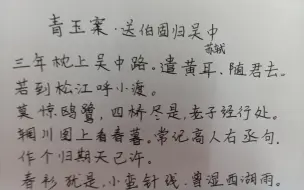 青玉案·送伯固归吴中
苏轼
三年枕上吴中路。遣黄耳、随君去。
若到松江呼小渡。
莫惊鸥鹭，四桥尽是，老子经行处。
辋川图上看春暮。常记高人右丞句。
作个归期天已许。
春衫犹是，小蛮针线，曾湿西湖雨。